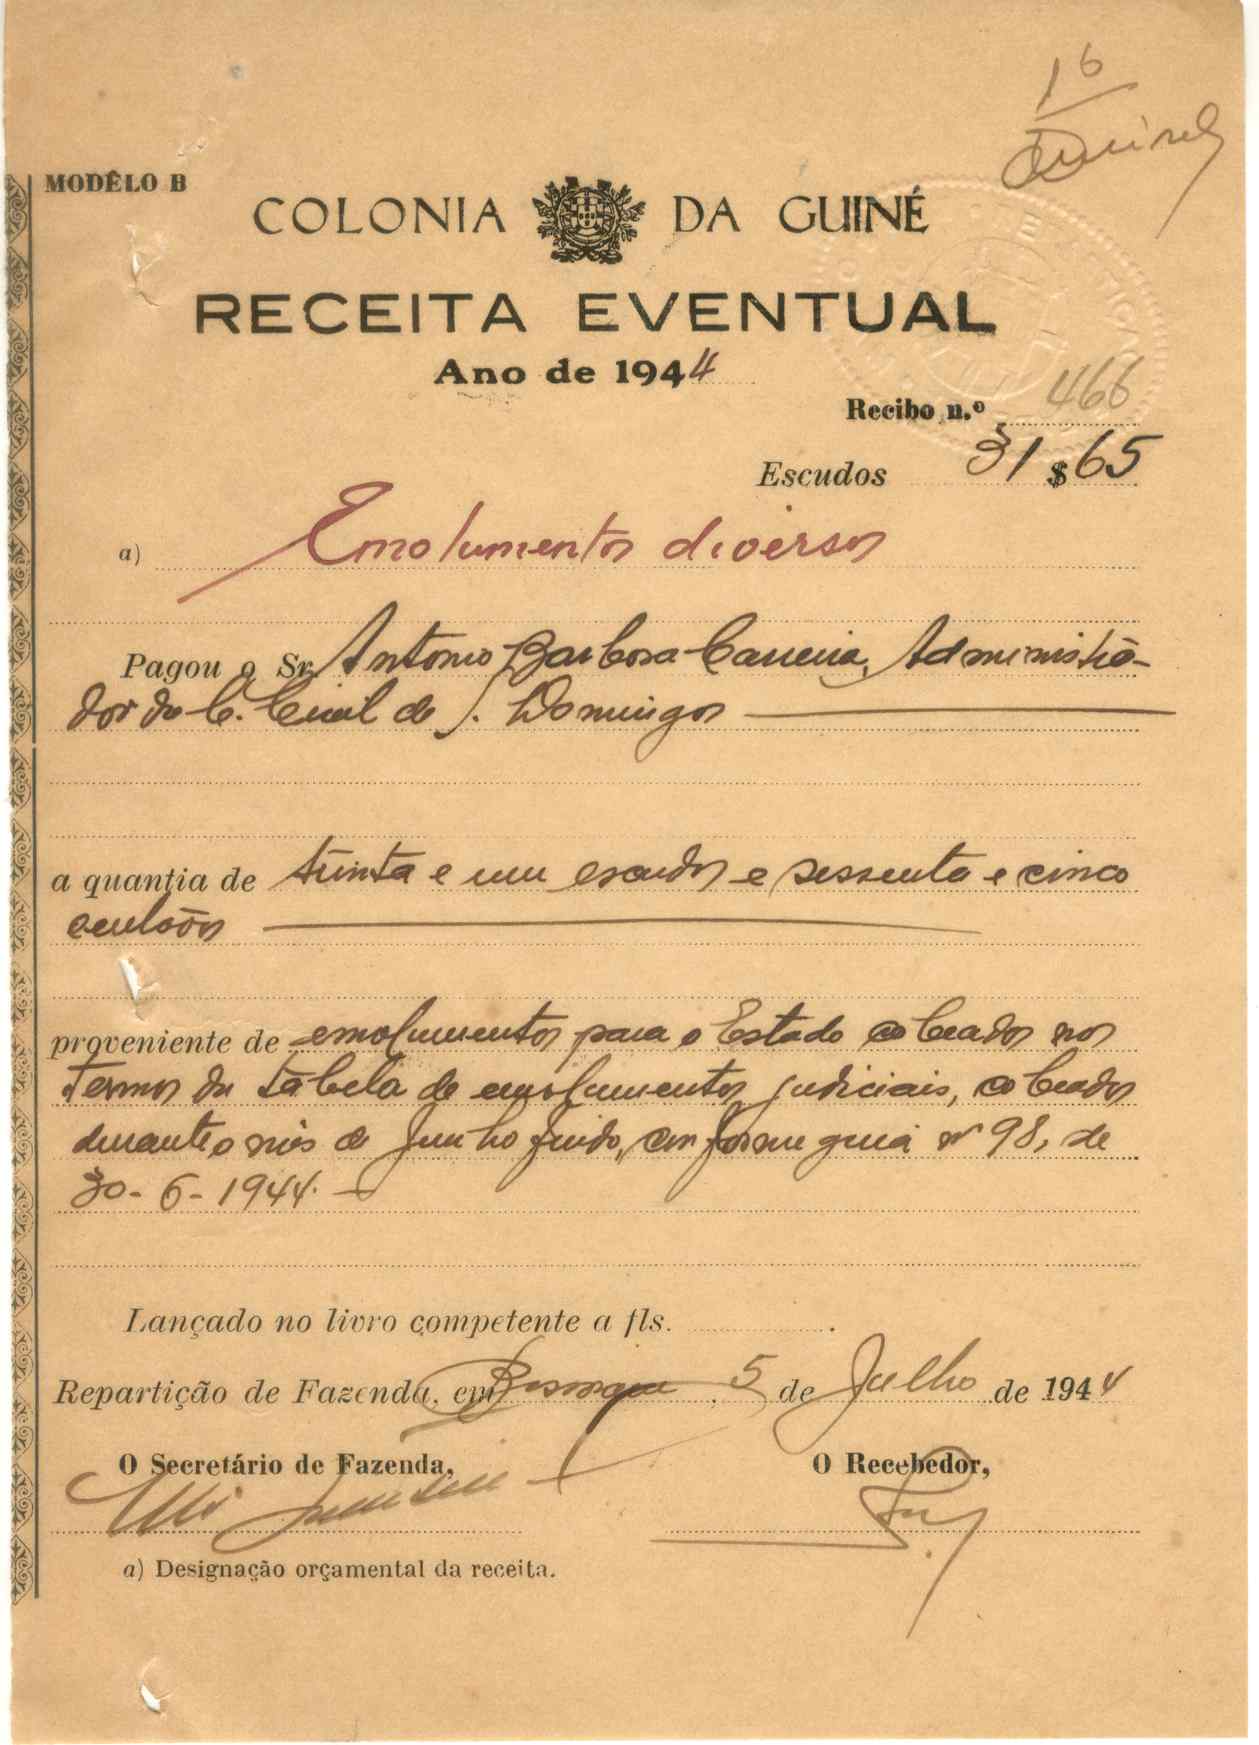 16
MODÊLO B
COLONIA DA GUINÉ
RECEITA EVENTUAL
Ano de 1944
Recibo n.º 466
Escudos 31$65
a) Emolumentos diversos
Pagou o Sr. António Barbosa Carreira, Administra-
dor da C. Civil de S. Domingos
a quantia de trinta e um escudos e sessenta e cinco
centavos
proveniente de emolumentos para o Estado cobrados nos
termos da tabela de emolumentos judiciais, cobrados
durante o mês de Junho findo, conforme guia nº 98, de
30-6-1944.
Lançado no livro competente a fls. .
Repartição de Fazenda, em , 5 de Julho de 1944
O Secretário de Fazenda,
O Recebedor,
a) Designação orçamental da receita.